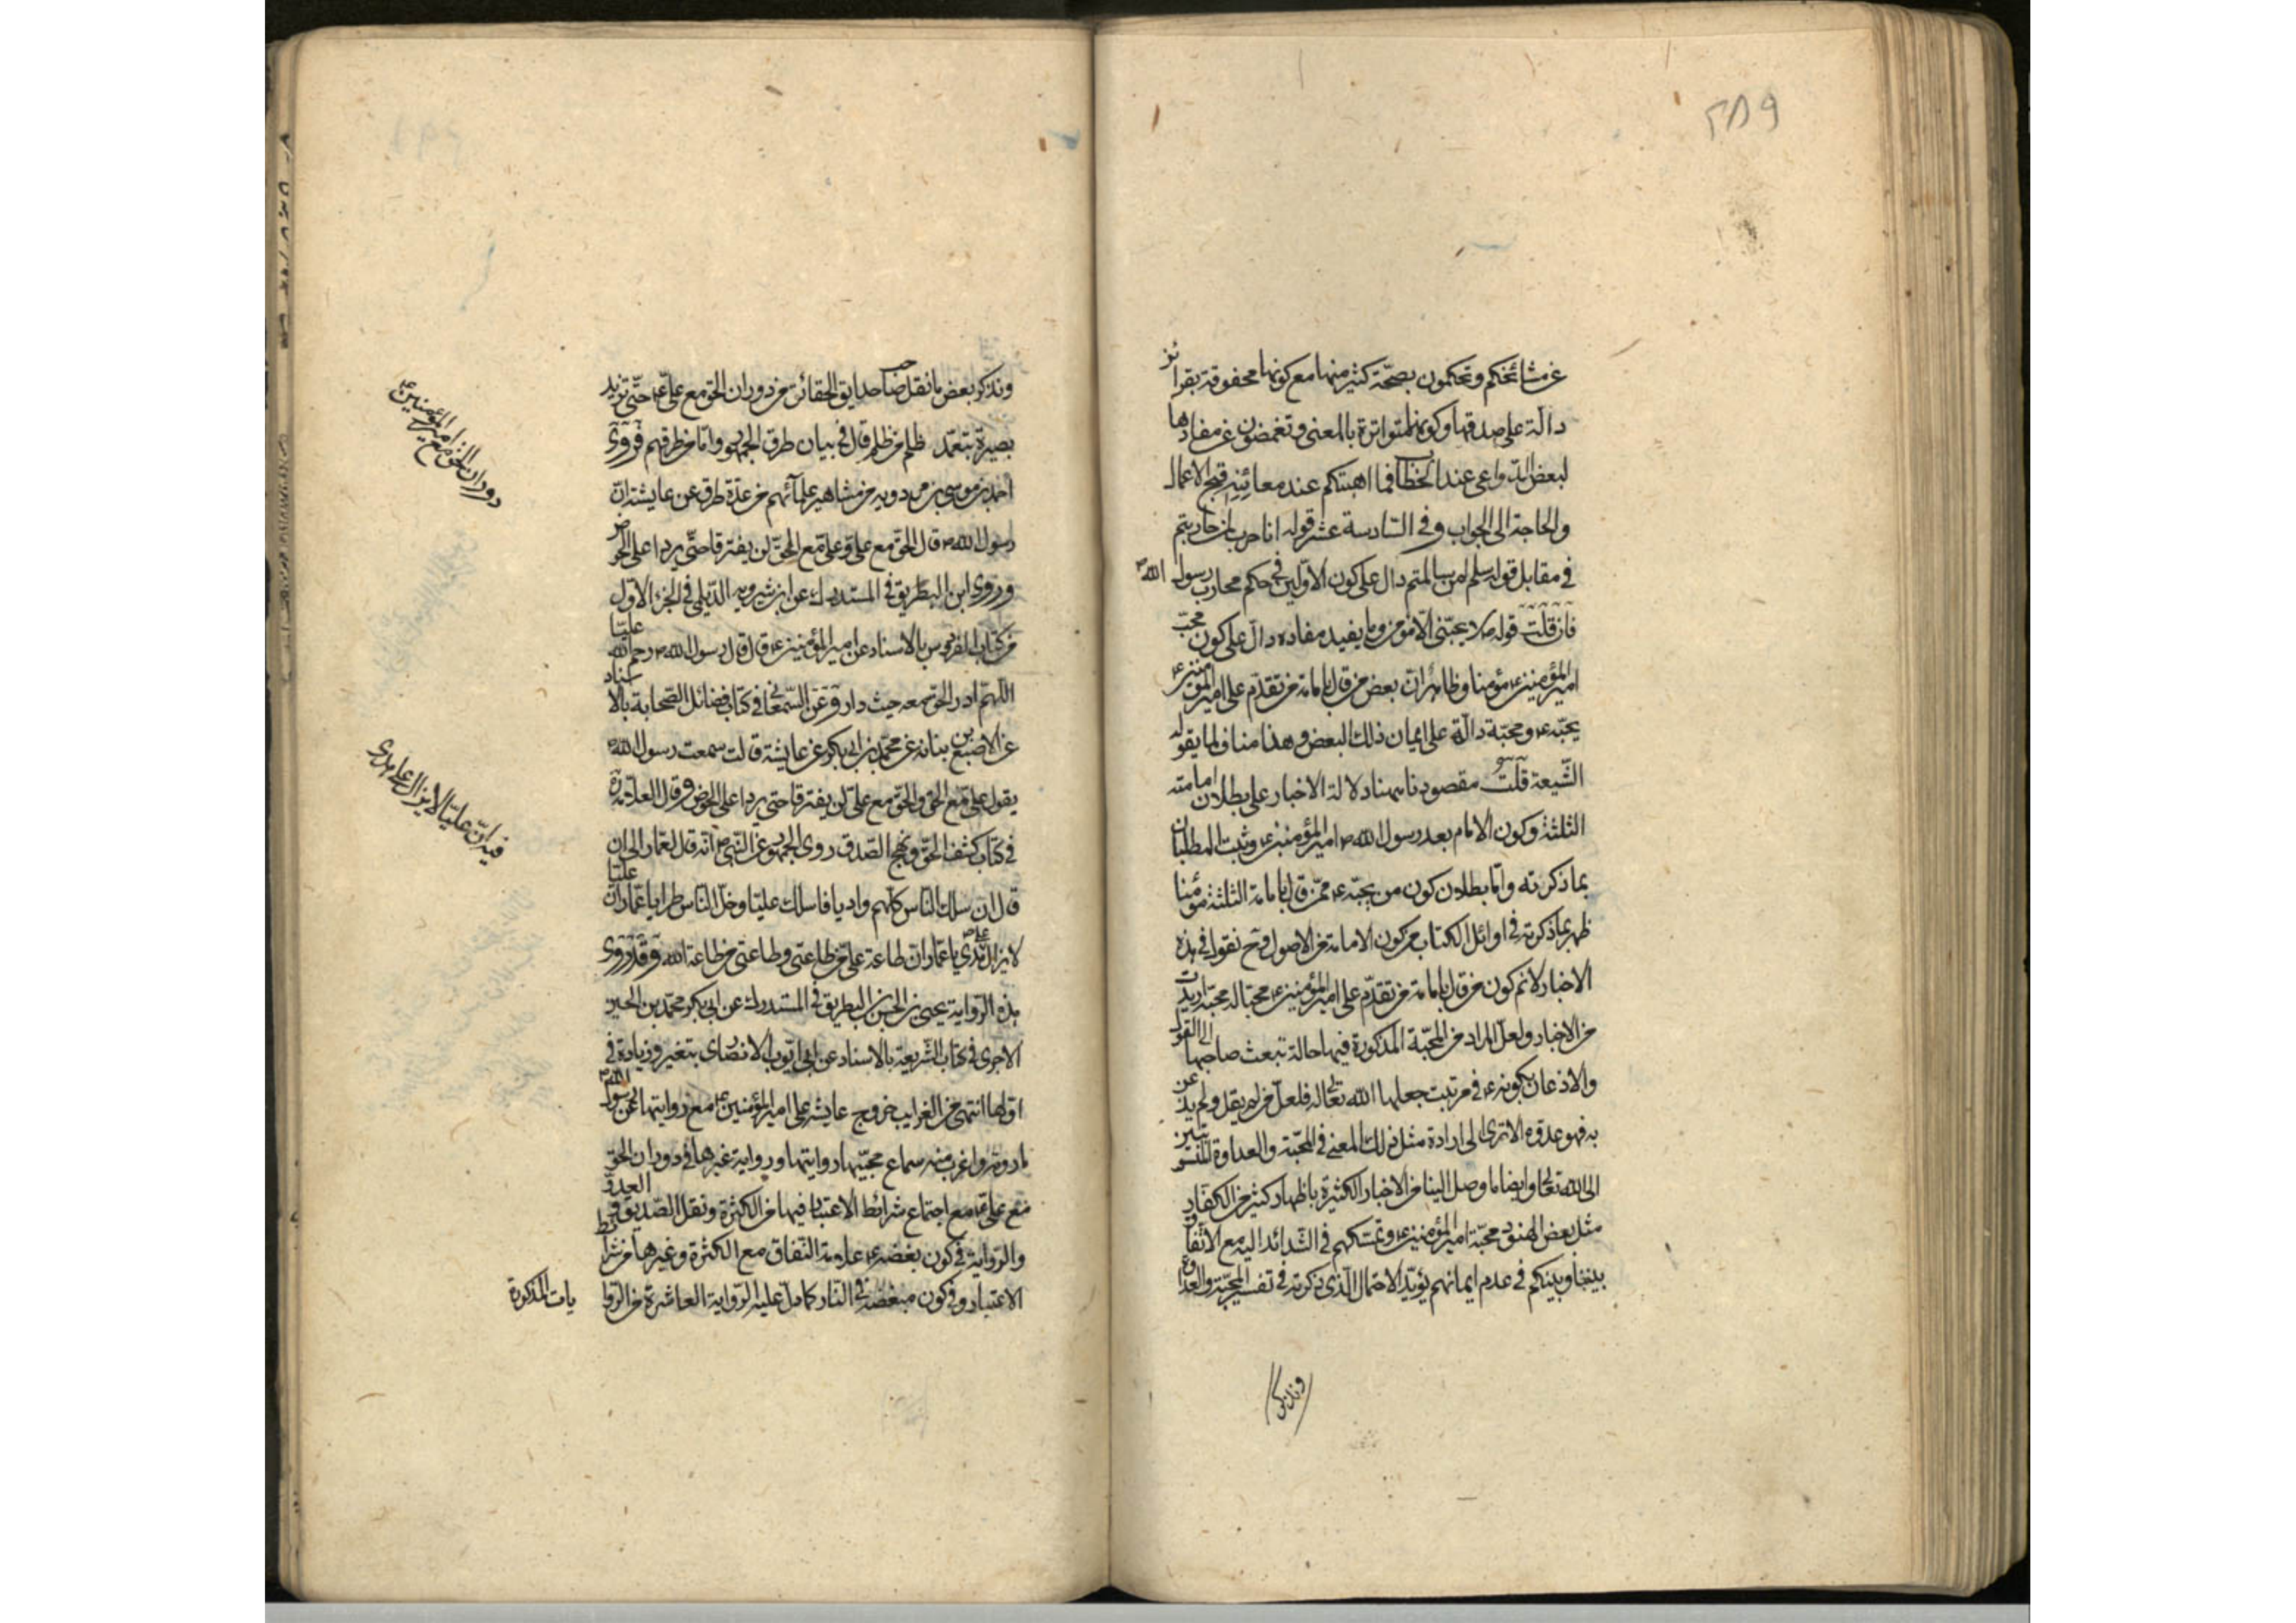 ٢٨٩
عن مشائخكم وتحكمون بصحّة كثير منها مع كونها محفوفة بقرائن
دالّة على صدقها وكونها متواترة بالمعنى وتغمضون عن مفادها
لبعض الدّواعى عند الخطاب فما اهبتكم عند معائنة قبح الاعمال
والحاجة الى الجواب وفى السّادسة عشر قوله انا حرب لمن حاربتم
فى مقابل قوله سلم لمن سالمتم دال على كون الاوّلين فى حكم محارب رسول اللهص
فان قلت قولهص لا يحبّنى الّا مؤمن وما يفيد مفاده دالّ على كون محبّ
امير المؤمنينع مؤمنا وظاهر انّ بعض من قال بامامة من تقدّم على امير المؤمنينع
يحبّهع ومحبّة دالّة على ايمان ذلك البعض وهذا مناف لما يقوله
الشّيعة قلت مقصودنا ههنا دلالة الاخبار على بطلان امامته
الثلثة وكون الامام بعد رسول اللهص امير المؤمنينع وثبت المطلبان
بما ذكرته وامّا بطلان كون من يحبّهع ممّن قال بامامة الثلثة مؤمنا
ظهر بما ذكرته فى اوائل الكتاب من كون الامامة من الاصول وح نقول فى هذه
الاخبار لا نم كون من قال بامامة من تقدّم على امير المؤمنينع محبّا له محبّة اريدت
من الاخبار ولعلّ المراد من المحبّة المذكورة فيها حالة تبعث صاحبها الى القول
والاذعان بكونهع فى مرتبت جعلها الله تعالى له فلعلّ من لم يقل ولم يذعن
به فهو عدوّه الا ترى الى ارادة مثل ذلك المعنى فى المحبّة والعداوة المنسوبتين
الى الله تعالى وايضا ما وصل الينا من الاخبار الكثيرة باظهار كثير من الكفّار
مثل بعض الهنود محبّة امير المؤمنينع وتمسّكهم فى الشّدائد اليه مع الاتّفاق
بيننا وبينكم فى عدم ايمانهم يؤيّد الاحتمال الّذى ذكرته فى تفسير المحبّة والعداوة
ونذكر
ونذكر بعض ما نقل صاحب حدايق الحقائق من دوران الحق مع علىّع حتّى تزيد
بصيرة بتعمّد ظلم من ظلم قال فى بيان طرق الجمهور وامّا من طرقهم فروى
احمد بن موسى بن مردويه من مشاهير علمائهم من عدّة طرق عن عايشة انّ
رسول اللهص قال الحقّ مع علىّ وعلىّ مع الحقّ لن يفترقا حتّى يردا على الحوض
وروى ابن البطريق فى المستدرك عن ابن شيرويه الدّيلمى فى الجزء الاوّل
من كتاب الفردوس بالاسناد عن امير المؤمنينع قال قال رسول اللهص رحم الله عليّا
اللهمّ ادر الحقّ معه حيث دار وعن السّمعانى فى كتاب فضائل الصّحابة بالاسناد
عن الاصبغ بن نباته عن محمّد بن ابى بكر عن عايشة قالت سمعت رسول اللهص
يقول علىّ مع الحق والحقّ مع علىّ لن يفترقا حتى يردا على الحوض وقال العلّامة
فى كتاب كشف الحقّ ونهج الصّدق روى الجمهور عن النّبىص انّه قال لعمّار الى ان
قال ان سلك النّاس كلّهم واديا فاسلك عليّا وخلّ النّاس طرا يا عمّار انّ عليّا
لا يزال على هدى يا عمّار انّ طاعة علىّ من طاعتى وطاعتى من طاعة الله وقد روى
هذه الرّواية يحيى بن الحسن البطريق فى المستدرك عن ابى بكر محمّد بن الحسين
الاجرى فى كتاب الشّريعة بالاسناد عن ابى ايّوب الانصارى بتغير وزيادة فى
اوّلها انتهى من الغرايب خروج عايشة على امير المؤمنينع مع روايتها عن رسول اللهص
ما روته واغرب منه سماع محبّيها روايتها ورواية غيرها فى دوران الحقّ
مع علىّع مع اجتماع شرائط الاعتبار فيها من الكثرة ونقل الصّديق والعدوّ
والرّواية فى كون بغضهع علامة النّفاق مع الكثرة وغيرها من شرائط
الاعتبار وفى كون مبغضه فى النّار كما دلّ عليه الرّواية العاشرة من الرّوا
يات المذكورة
دوران الحق مع امير المؤمنينع
فيه انّ عليّا لا يزال على هدى